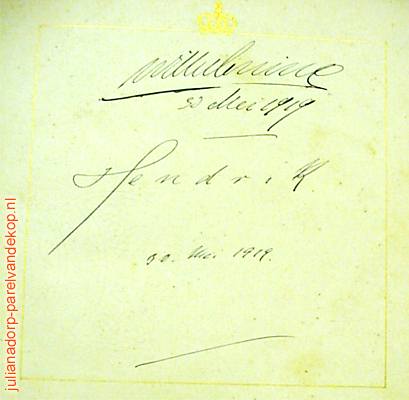 Wilhelmina
30 Mei 1919
Hendrik
30. Mei 1919.
julianadorp-parelvandekop.nl